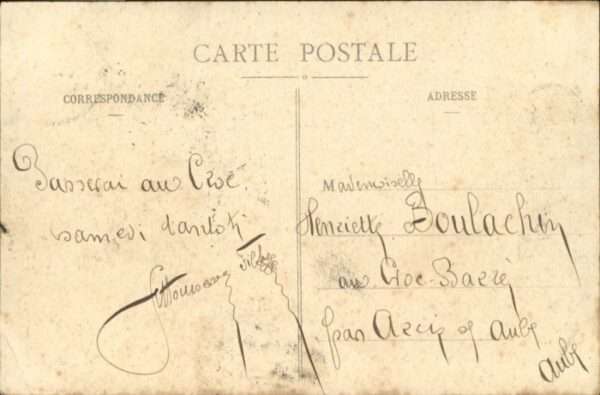 CARTE POSTALE
CORRESPONDANCE
ADRESSE
Passerai au Croc
samedi tantôt
Mademoiselle
Henriette Boulachin
au Croc-Barré
par Arcis s/ Aube
Aube